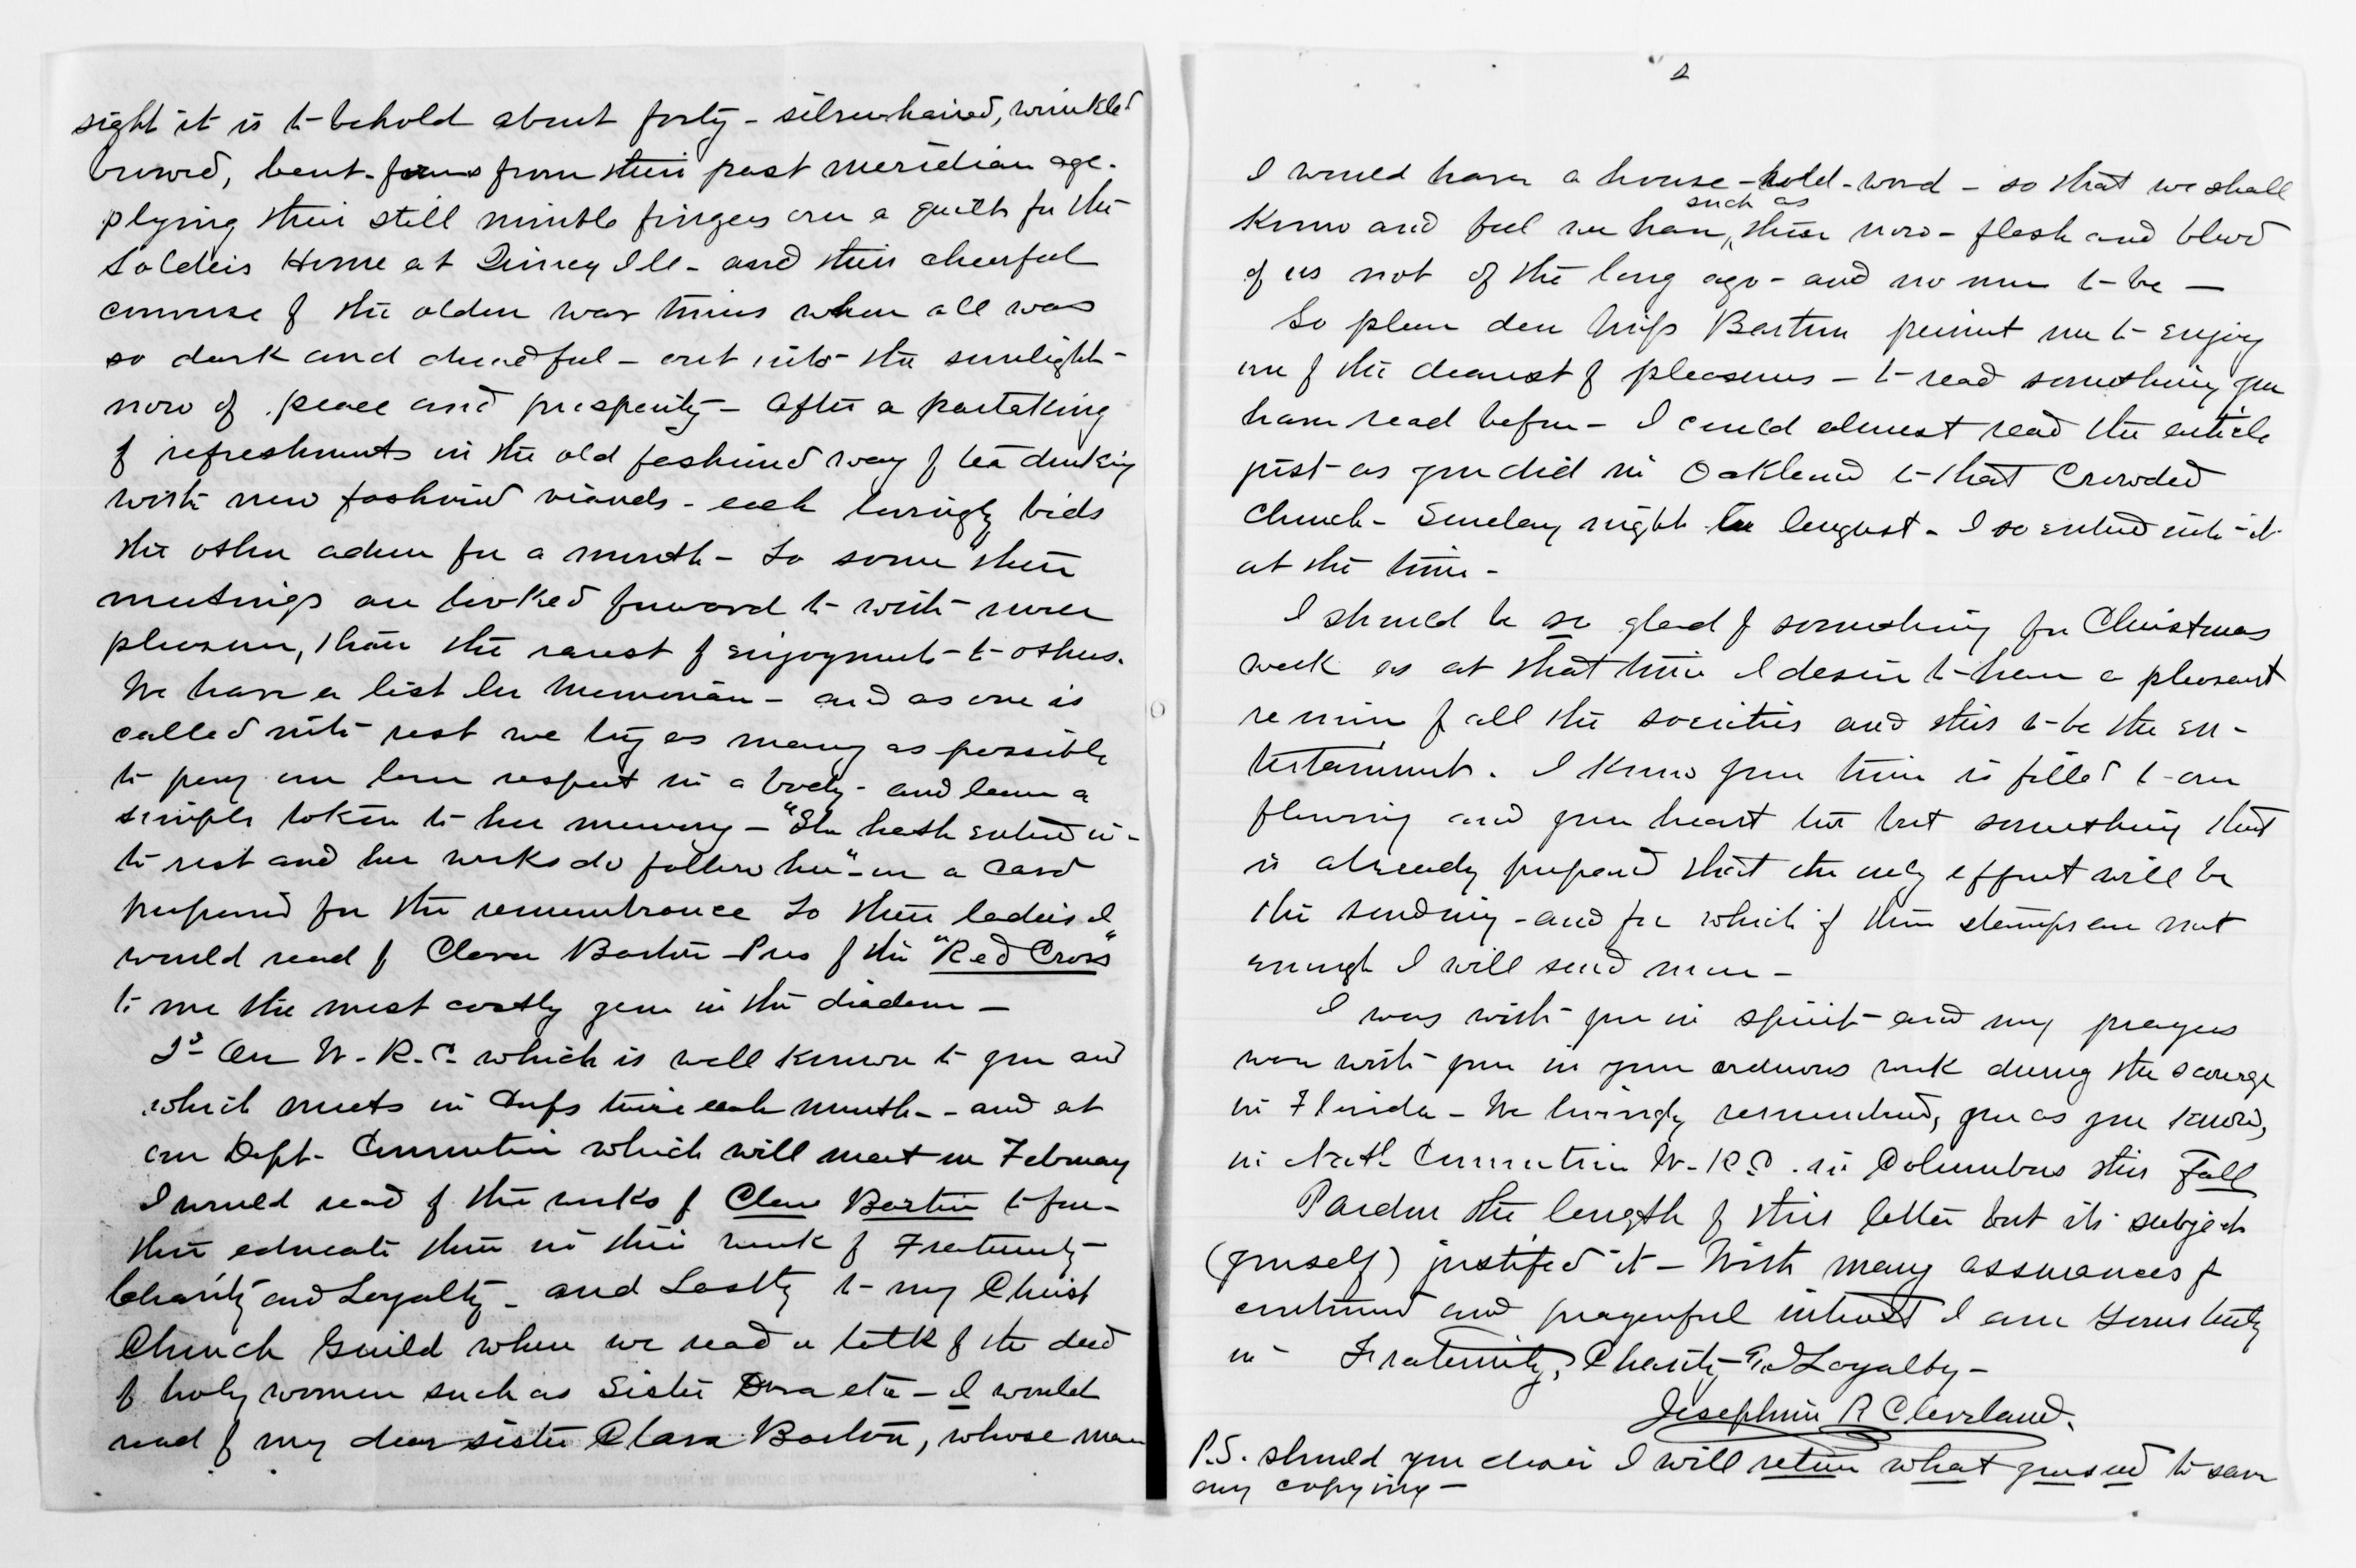 sight it is to behold about forty - silver haired, wrinkled
browed, bent forms from their past meridian age.
plying their still nimble fingers over a quilt for the
Soldiers Home at Quincy Ill - and their cheerful
converse of the olden war times when all was
so dark and dreadful - out into the sunlight -
now of peace and prosperity - After a partaking
of refreshments in the old fashioned way of tea drinking
with new fashioned viands - each lovingly bids
the other adieu for a month - To some these
meetings are looked forward to with more
pleasure, than the rarest of enjoyments to others.
We have a list In Memoriam - and as one is
called into rest we try as many as possible
to pay our last respect in a body - and leave a
simple token to her memory - "She hath entered in-
to rest and her works do follow her" - on a card
prepared for the remembrance To these ladies I
would read of Clara Barton Pres of the "Red Cross"
to me the most costly gem in the diadem -
2d - Our W. R. C. which is well known to you and
which meets in Corps twice each month - and at
our Dept. Convention which will meet in February
I would read of the works of Clara Barton to fur-
ther educate them in their work of Fraternity
Charity and Loyalty - and Lastly to my Christ
Church Guild when we read or talk of the deed
of holy women such as Sister Dora etc - I would
read of my dear sister Clara Barton, whose name
2
I would have a house-hold-word - so that we shall
such as
know and feel we have these now - flesh and blood
of us not of the long ago - and no more to be -
So please dear Miss Barton permit me to enjoy
one of the dearest of pleasures - to read something you
have read before - I could almost read the article
just as you did in Oakland to that Crowded
Church - Sunday night in August - I so entered into it
at the time -
I should be so glad of something for Christmas
week as at that time I desire to have a pleasant
reunion of all the societies and this to be the en-
tertainment. I know your time is filled to over
flowing and your heart too but something that
is already prepared that the only effort will be
the sending - and for which if these stamps are not
enough I will send more -
I was with you in spirit and my prayers
were with you in your arduous work during the scourge
in Florida - We lovingly remembered, you as you know,
in Nat'l Convention W. R. C. in Columbus this Fall
Pardon the length of this letter but its subject
(yourself) justified it - With many assurances of
continued and prayerful interest I am Yours truly
in Fraternity, Charity and Loyalty -
Josephine R Cleveland.
P.S. should you desire I will return what you send to save
any copying -